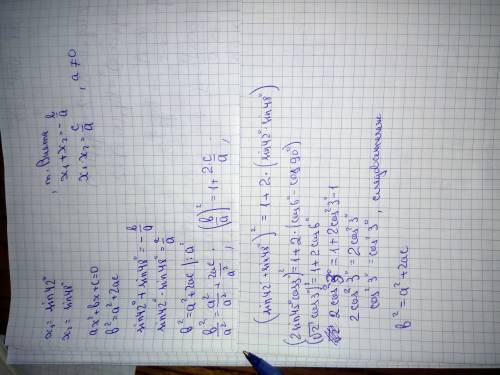 x₁ = sin 42°
x₂ = sin 48° , т. Виета
x₁ + x₂ = - b/a
x₁·x₂ = c/a , a ≠ 0
ax² + bx + c = 0
b² = a² + 2ac
sin 42° + sin 48° = - b/a
sin 42° · sin 48° = c/a
b² = a² + 2ac | : a²
b²/a² = a²/a² + 2ac/a² , (b/a)² = 1 + 2 c/a ,
(sin 42° + sin 48°)² = 1 + 2·(sin 42° · sin 48°)
(2 sin 45° cos 3°)² = 1 + 2·(cos 6° - cos 90°)
(√2 cos 3°)² = 1 + 2 cos 6°
2 cos² 3° = 1 + 2 cos² 3° - 1
2 cos² 3° = 2 cos² 3°
cos² 3° = cos² 3° , следовательно
b² = a² + 2ac